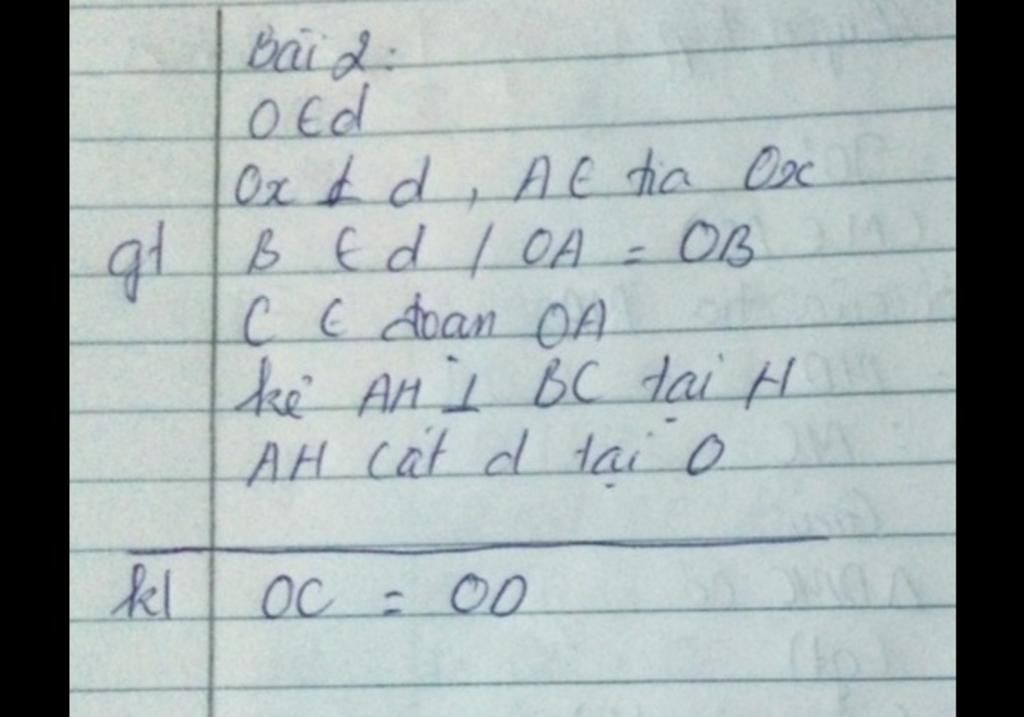 Bài 2:
O ∈ d
Ox ⊥ d, A ∈ tia Ox
gt B ∈ d / OA = OB
C ∈ đoan OA
kẻ AH ⊥ BC tại H
AH cắt d tại D
kl OC = OD